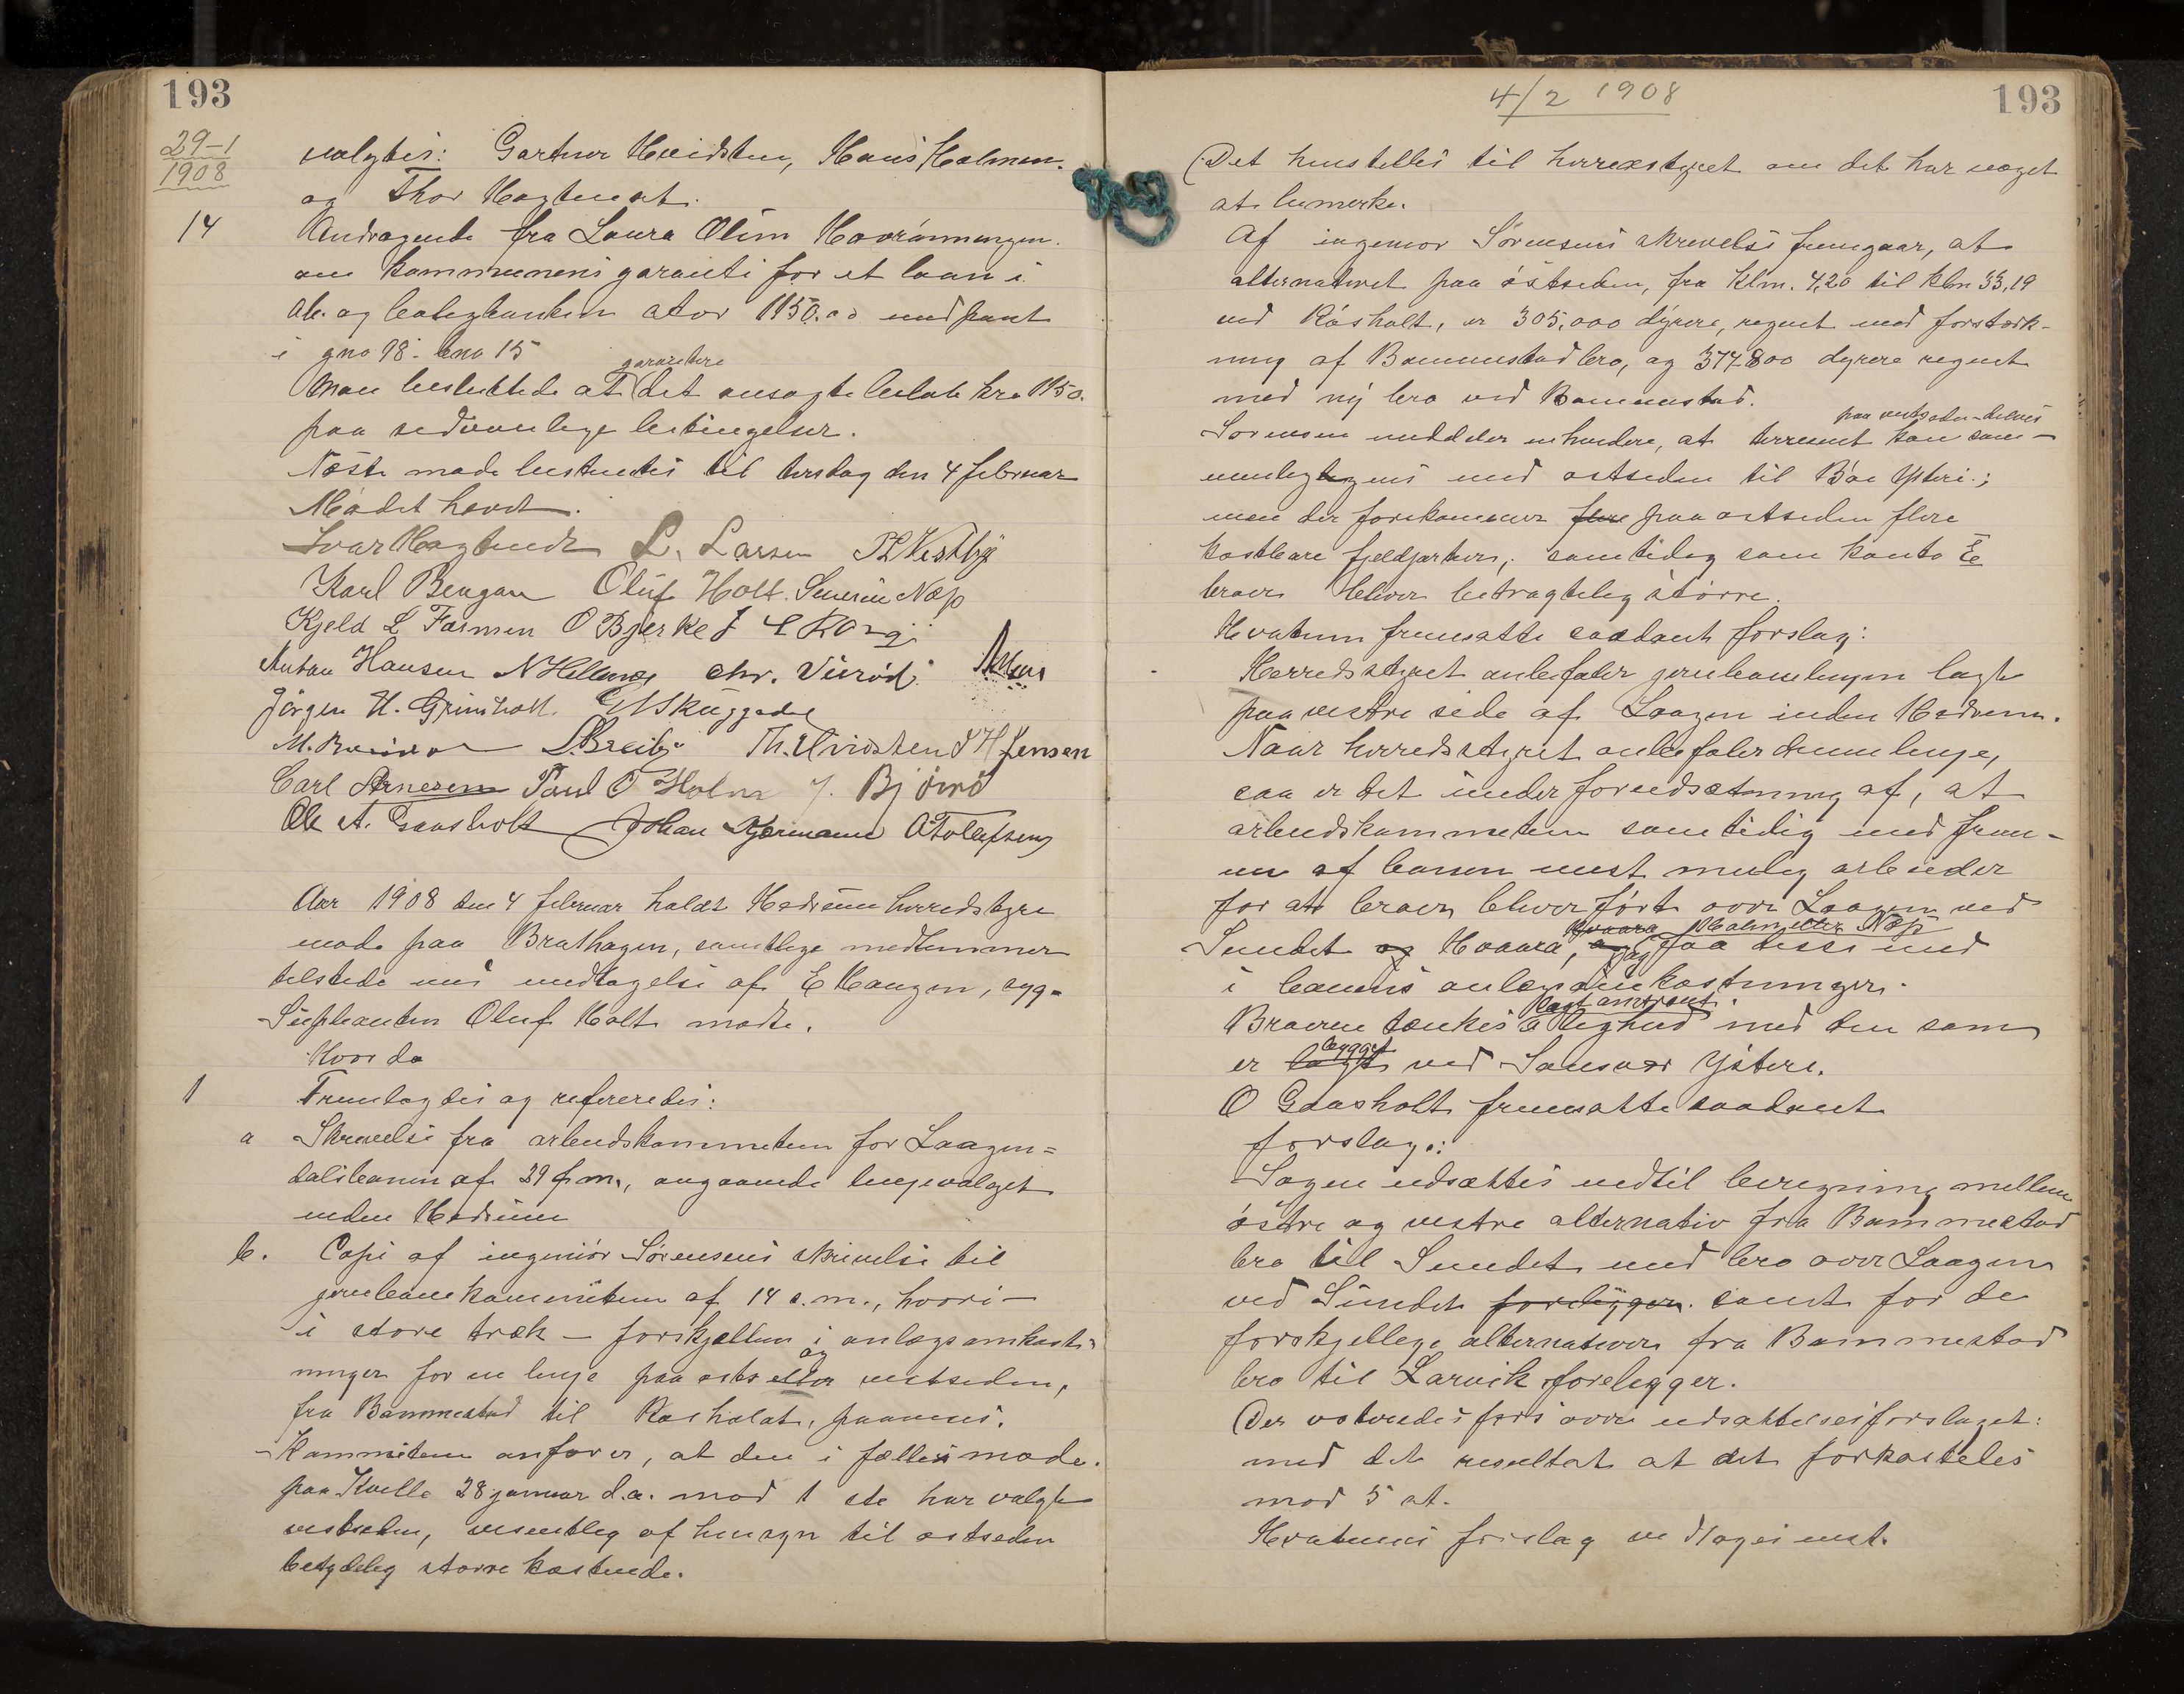 193
29-1
1908
valgtes: Gartner Hvidsten, Hans Holmen.
og Thor Hagtvedt.
14 Andragende fra Laura Olsen Hovrönningen.
om kommunens garanti for et laan i
Ab. og boligbanken stor 1150.00 mod pant
i gno 98. bno 15
garantere
Man besluttede at det ansøgte beløb kr. 1150.
paa sedvanlige betingelser.
Næste møde bestemtes til tirsdag den 4 februar
Mödet hævet.
Ivar Hagtvedt L. Larsen P L Vestby
Karl Bengan Oluf Holt. Severin Næss
Kjeld L Farmen O Bjerke
Anton Hansen N Hellenæs Chr. Virröd
Jörgen H. Grinholt. E N Skuggedal
L. Breiby Th. Hvidsten S H Jensen
Carl Arnesen Poul O Holm J. Björnö
Ole A. Gaasholt Johan Gjermann O Tolefsen
Aar 1908 den 4 februar holdt Hedrum herredstyre
møde paa Brathagen, samtlige medlemmer
tilstede med undtagelse af E Haugen, syg-
Supleanten Oluf Holt mødte.
Hvor da
1 Fremlagdes og refereredes:
a Skrivelse fra arbeidskommiteen for Laagen=
dalsbanen af 29 f.m., angaaende linjevalget
inden Hedrum
b. Copi af ingeniör Sörensens skrivelse til
jernbanekommiteen af 14 s.m., hvori –
i store træk – forskjellen i anlægsomkost-
og
ninger for en linje paa øst eller vestsiden,
fra Bommestad til Kosholdt, paavises.
Kommiteen anfører, at den i fællesmøde
paa Kvelle 28 januar d.a. mod 1 ste har valgt
vestsiden, vesentlig af hensyn til østsiden
betydelig større kostende.
4/2 1908
193
Det henstilles til herredstyret om det har noget
at bemerke.
Af ingeniør Sörensens skrivelse fremgaar, at
alternativet paa östsiden, fra Klm. 4,20 til Klm 33,19
ved Kösholt, er 305,000 dyrere, regnet med forstærk-
ning af Bommestad bro, og 377800 dyrere regnet
med ny bro ved Bommestad.
paa vestsiden delvis
Sørensen meddeler enhvidere, at terrænet kan sam-
menligtgnes med østsiden til Böe Ystere.;
men der forekommer flere paa østsiden flere
kostbare fjeldpartier, samtidig som konto E
broer bliver betragtelig större.
Hvatum fremsatte saadant forslag:
Herredsstyret anbefaler jernbanelinjen lagt
paa vestre side af Laagen inden Hedrum.
Naar herredsstyret anbefaler denne linje,
saa er det under forudsætning af, at
arbeidskommiteen samtidig med frem-
me af banen mest mulig arbeider
for at broer bliver ført over Laagen ved
Hvaara Holmen eller Næss
Sundet og Hvaara, og faa disse med
i banens anlægsomkostninger.
lagt omtrent
Broerne tænkes i lighed med den som
bygget
er lagt ved Sansvær Ystere.
O Gaasholt fremsatte saadant
forslag:
Sagen udsættes indtil beregning mellem
østre og vestre alternativ fra Bommestad
bro til Sundet med bro over Laagen
ved Sundet foreligger. samt for de
forskjellige alternativer fra Bommestad
bro til Larvik foreligger.
Der voteredes først over udsættelsesforslaget:
med det resultat at det forkastedes
mod 5 st.
Hvatums forslag vedtoges enst.